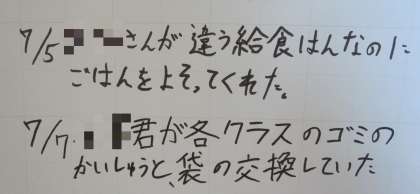 7/5 さんが違う給食はんなのに
ごはんをよそってくれた。
7/7. 君が各クラスのゴミの
かいしゅうと、袋の交換していた